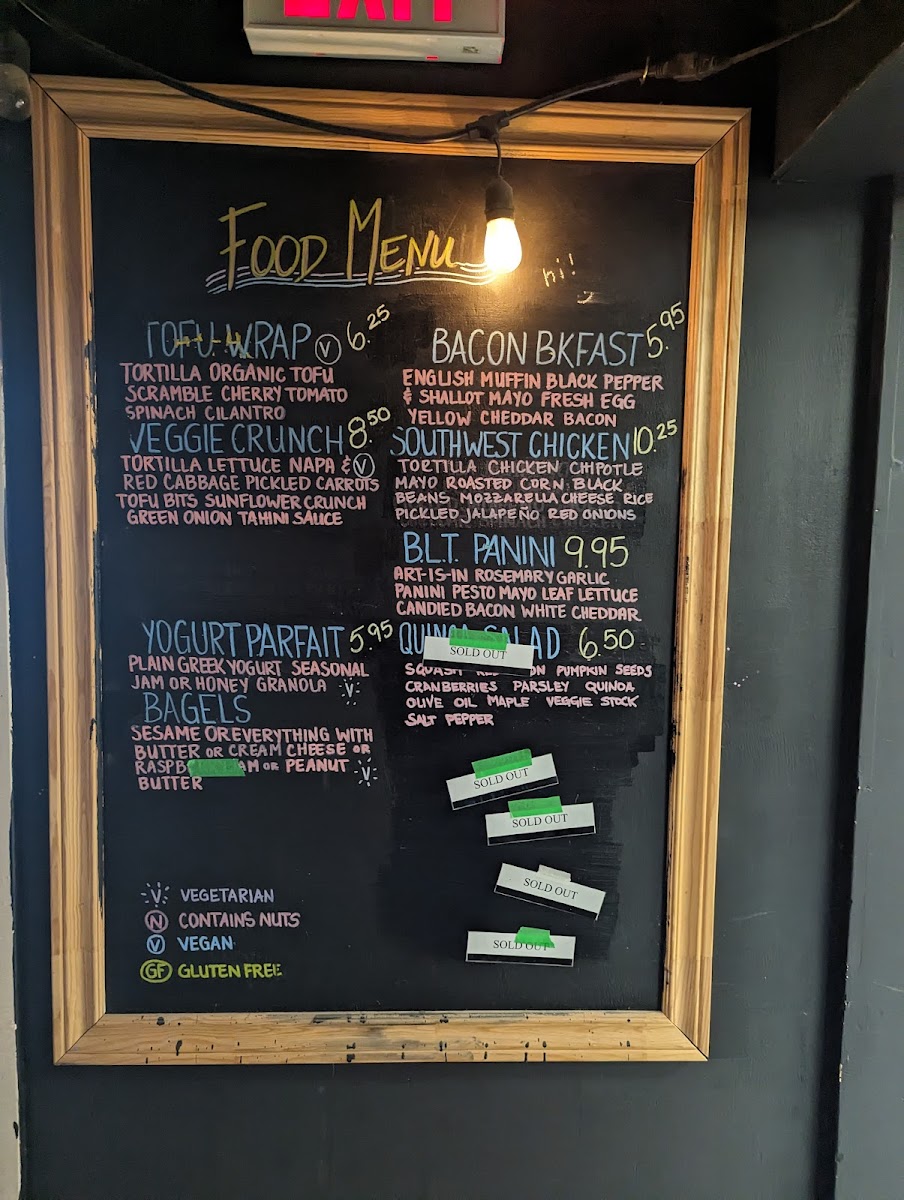 EXIT
FOOD MENU
hi!
TOFU WRAP V 6.25
TORTILLA ORGANIC TOFU
SCRAMBLE CHERRY TOMATO
SPINACH CILANTRO
VEGGIE CRUNCH 8.50
TORTILLA LETTUCE NAPA & V
RED CABBAGE PICKLED CARROTS
TOFU BITS SUNFLOWER CRUNCH
GREEN ONION TAHINI SAUCE
YOGURT PARFAIT 5.95
PLAIN GREEK YOGURT SEASONAL
JAM OR HONEY GRANOLA V
BAGELS
SESAME OR EVERYTHING WITH
BUTTER OR CREAM CHEESE OR
RASPB AM OR PEANUT V
BUTTER
BACON BKFAST 5.95
ENGLISH MUFFIN BLACK PEPPER
& SHALLOT MAYO FRESH EGG
YELLOW CHEDDAR BACON
SOUTHWEST CHICKEN 10.25
TORTILLA CHICKEN CHIPOTLE
MAYO ROASTED CORN BLACK
BEANS MOZZARELLA CHEESE RICE
PICKLED JALAPEÑO RED ONIONS
B.L.T. PANINI 9.95
ART-IS-IN ROSEMARY GARLIC
PANINI PESTO MAYO LEAF LETTUCE
CANDIED BACON WHITE CHEDDAR
QUINOA SALAD 6.50
SOLD OUT
SQUASH ON PUMPKIN SEEDS
CRANBERRIES PARSLEY QUINOA
OLIVE OIL MAPLE VEGGIE STOCK
SALT PEPPER
SOLD OUT
SOLD OUT
SOLD OUT
SOLD OUT
V VEGETARIAN
N CONTAINS NUTS
V VEGAN
GF GLUTEN FREE